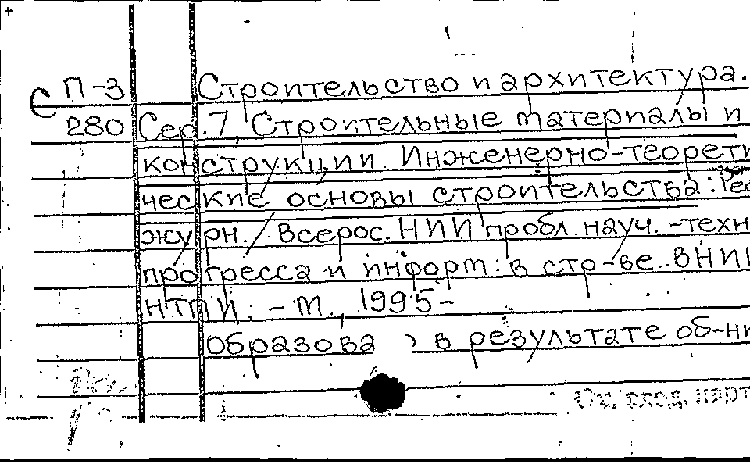 С П-3 Строительство и архитектура.
280 Сер.7, Строительные материалы и
конструкции. Инженерно-теорети
ческие основы строительства: Реф
журн. / Всерос. НИИ пробл. науч.-техн
прогресса и информ. в стр-ве. ВНИИ
НТПИ. - М., 1995-
образова в результате об-ни